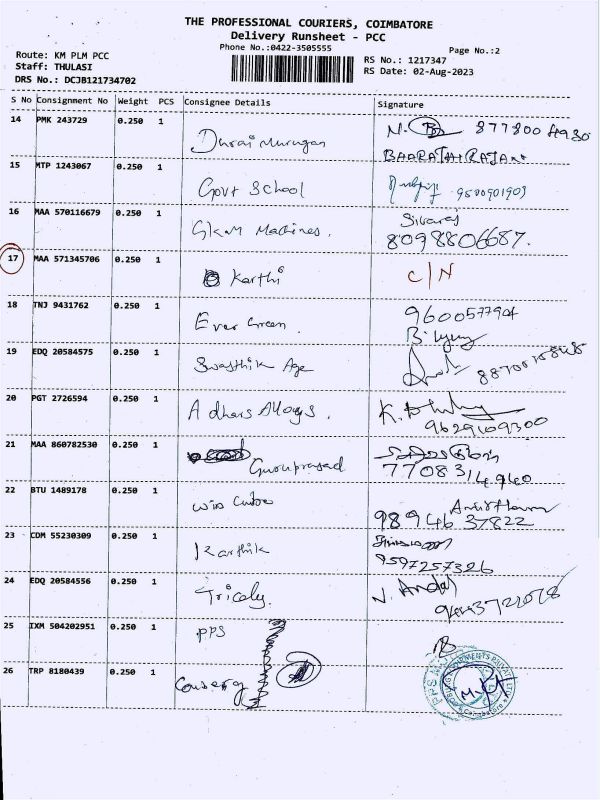 THE PROFESSIONAL COURIERS, COIMBATORE
Delivery Runsheet - PCC
Phone No.:0422-3505555
Page No.:2
Route: KM PLM PCC
Staff: THULASI
DRS No.: DCJB121734702
RS No.: 1217347
RS Date: 02-Aug-2023
S No Consignment No Weight PCS Consignee Details Signature
14 PMK 243729 0.250 1 Durai Murugan N.
BAARATHIRAJAN
15 MTP 1243067 0.250 1 Govt School 9500901903
16 MAA 570116679 0.250 1 Machines. Sivaraj
8098806687.
17 MAA 571345706 0.250 1 Karthi C/N
18 TNJ 9431762 0.250 1 Ever Green. 9600577904
19 EDQ 20584575 0.250 1 Swasthik Age
20 PGT 2726594 0.250 1 Adhars Alloys.
9629109300
21 MAA 860782530 0.250 1 Guruprasad
7708314940
22 BTU 1489178 0.250 1
98946 37822
23 CDM 55230309 0.250 1 Karthik
9597257326
24 EDQ 20584556 0.250 1 Tricely. V. Andal
25 IXM 504202951 0.250 1 PPS
26 TRP 8180439 0.250 1